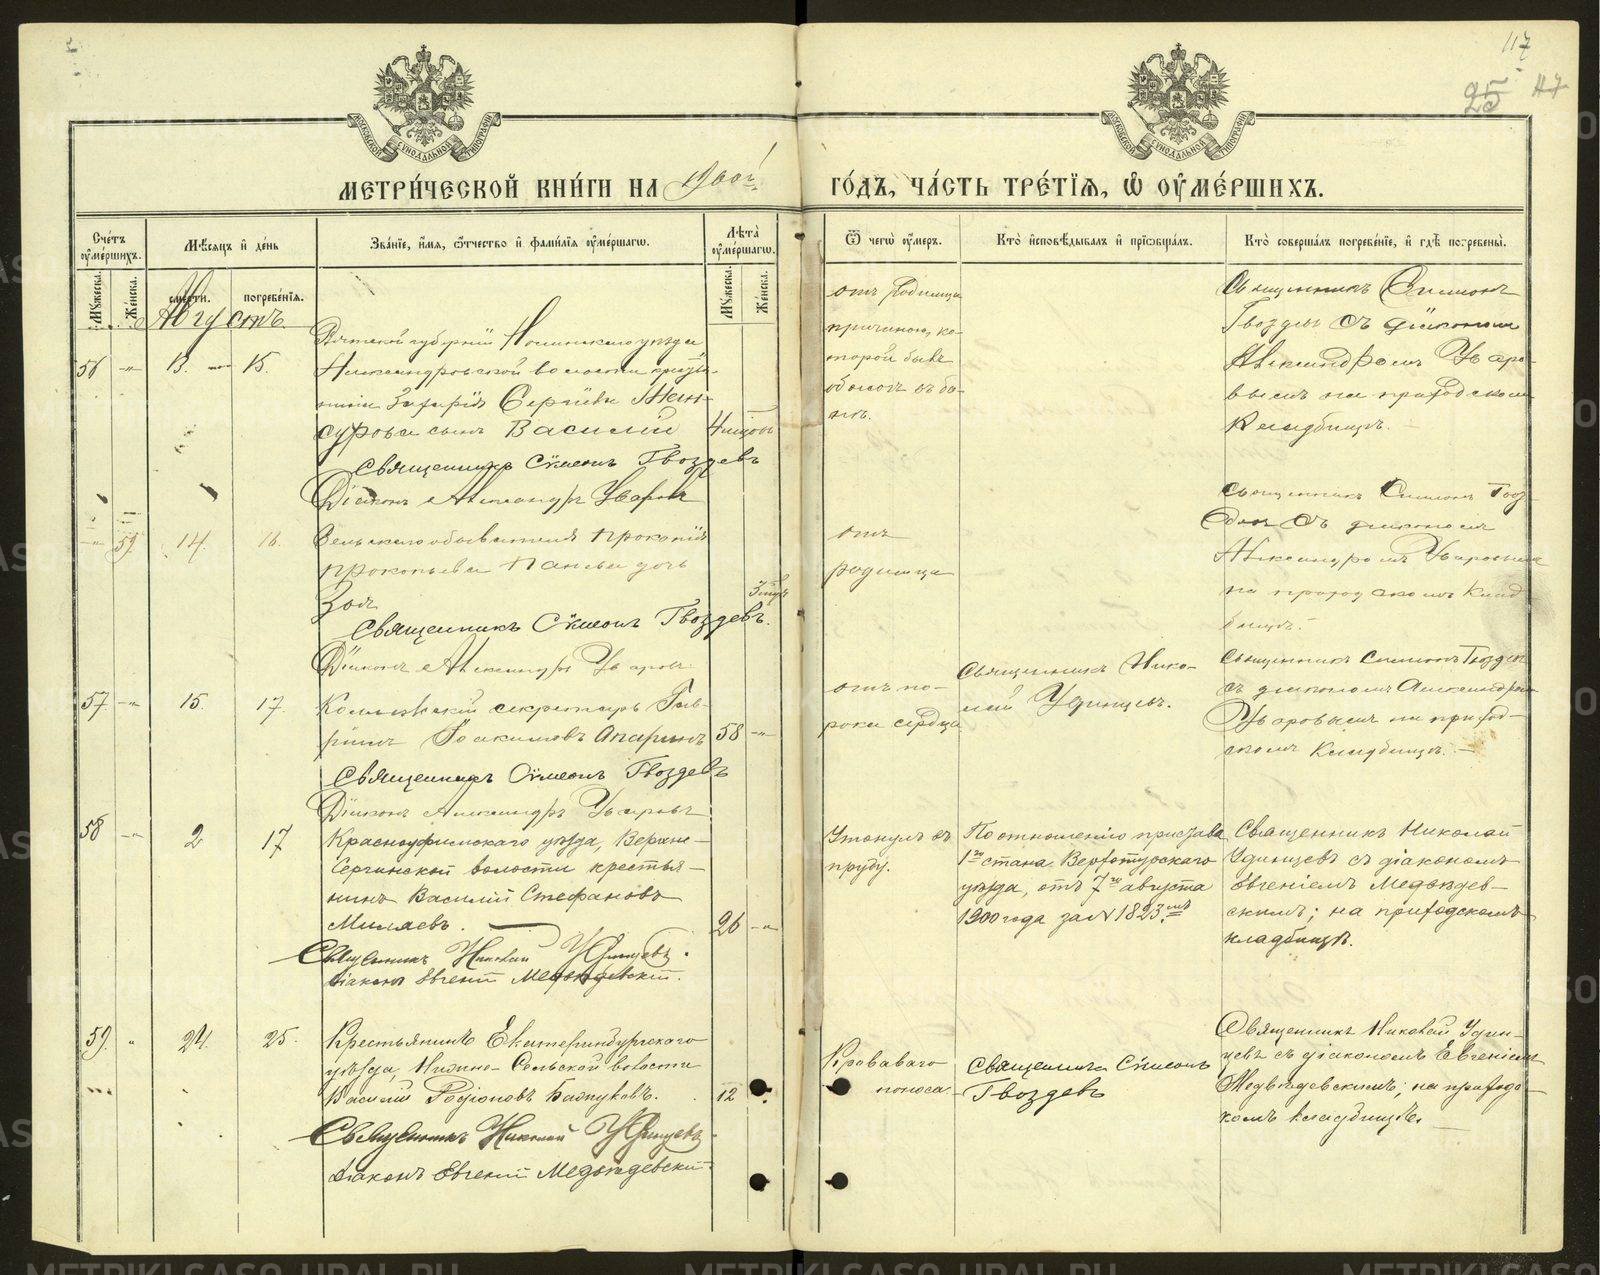 117
25 117
МОСКОВСКОЙ СУНОДАЛЬНОЙ ТИПОГРАФІИ
МОСКОВСКОЙ СУНОДАЛЬНОЙ ТИПОГРАФІИ
МЕТРИ́ЧЕСКОЙ КНИ́ГИ НА 1900й ГО́ДЪ, ЧА́СТЬ ТРЕ́ТІЯ, Ѽ ОУМЕ́РШИХЪ.
Сче́тъ оуме́ршихъ.
Мꙋжеска.
Же́нска.
Мѣсяцъ и де́нь
сме́рти.
погребе́нїя.
Зва́нїе, и́мя, ѻ҆́тчество и фами́лїя оуме́ршагѡ.
Лѣта̀ оуме́ршагѡ.
Мꙋжеска.
Же́нска.
Ѿ чегѡ̀ оу́меръ.
Кто̀ и҆сповѣ́дывалъ и прїѡбща́лъ.
Кто̀ соверша́лъ погребе́нїе, и гдѣ̀ погребены̀.
Августъ.
56 -„- 13. 15.
Вятской губерніи Нолинскаго уѣзда
Александровской волости
Захарія Сергіева
сынъ Василій
4 мѣсяц.
Священникъ Сѵмеонъ Гвоздевъ
Діаконъ Александръ Уваровъ
отъ родимца
причиною, ко-
торой былъ
ожогъ въ ба-
нѣ.
Священникъ Симеонъ
Гвоздевъ съ діакономъ
Александромъ Уваро-
вымъ на приходскомъ
кладбищѣ.
-„- 59. 14. 16.
Сельскаго обывателя Прокопія
Прокопьева дочь
Зоя
Священникъ Сѵмеонъ Гвоздевъ.
Діаконъ Александръ Уваровъ
отъ
родимца
Священникъ Симеонъ Гвоз-
девъ съ діакономъ
Александромъ Уваровымъ
на приходскомъ клад-
бищѣ.
57. -„- 15. 17.
Коллежскій секретарь Гав-
ріилъ Іоакимовъ Апаринъ 58 -„-
Священникъ Сѵмеонъ Гвоздевъ
Діаконъ Александръ Уваровъ
отъ по-
рока сердца
Священникъ Нико-
лай Удинцевъ.
Священникъ Симеонъ Гвоздевъ
съ діакономъ Александромъ
Уваровымъ на приход-
скомъ кладбищѣ. —
58 -„- 2 17
Красноуфимскаго уѣзда, Верхне-
Сергинской волости крестья-
нинъ Василій Стефановъ
Миляевъ. 26 -„-
Священникъ Николай Удинцевъ.
Діаконъ Евгеній Медвѣдевскій.
Утонулъ въ
пруду.
По отношенію пристава
1го стана, Верхотурскаго
уѣзда, отъ 7го августа
1900 года за № 1823мъ
Священникъ Николай
Удинцевъ съ діакономъ
Евгеніемъ Медвѣдев-
скимъ; на приходскомъ
кладбищѣ.
59. „ 24. 25.
Крестьянинъ Екатеринбургскаго
уѣзда, Нижне-Сельской волости
Василій Родіоновъ Башуковъ. 12
Священникъ Николай Удинцевъ
Діаконъ Евгеній Медвѣдевскій.
Кроваваго
поноса.
Священникъ Сѵмеонъ
Гвоздевъ
Священникъ Николай Удин-
цевъ съ діакономъ Евгеніемъ
Медвѣдевскимъ; на приходс-
комъ кладбищѣ. —
METRIKI.GASO-URAL.RU